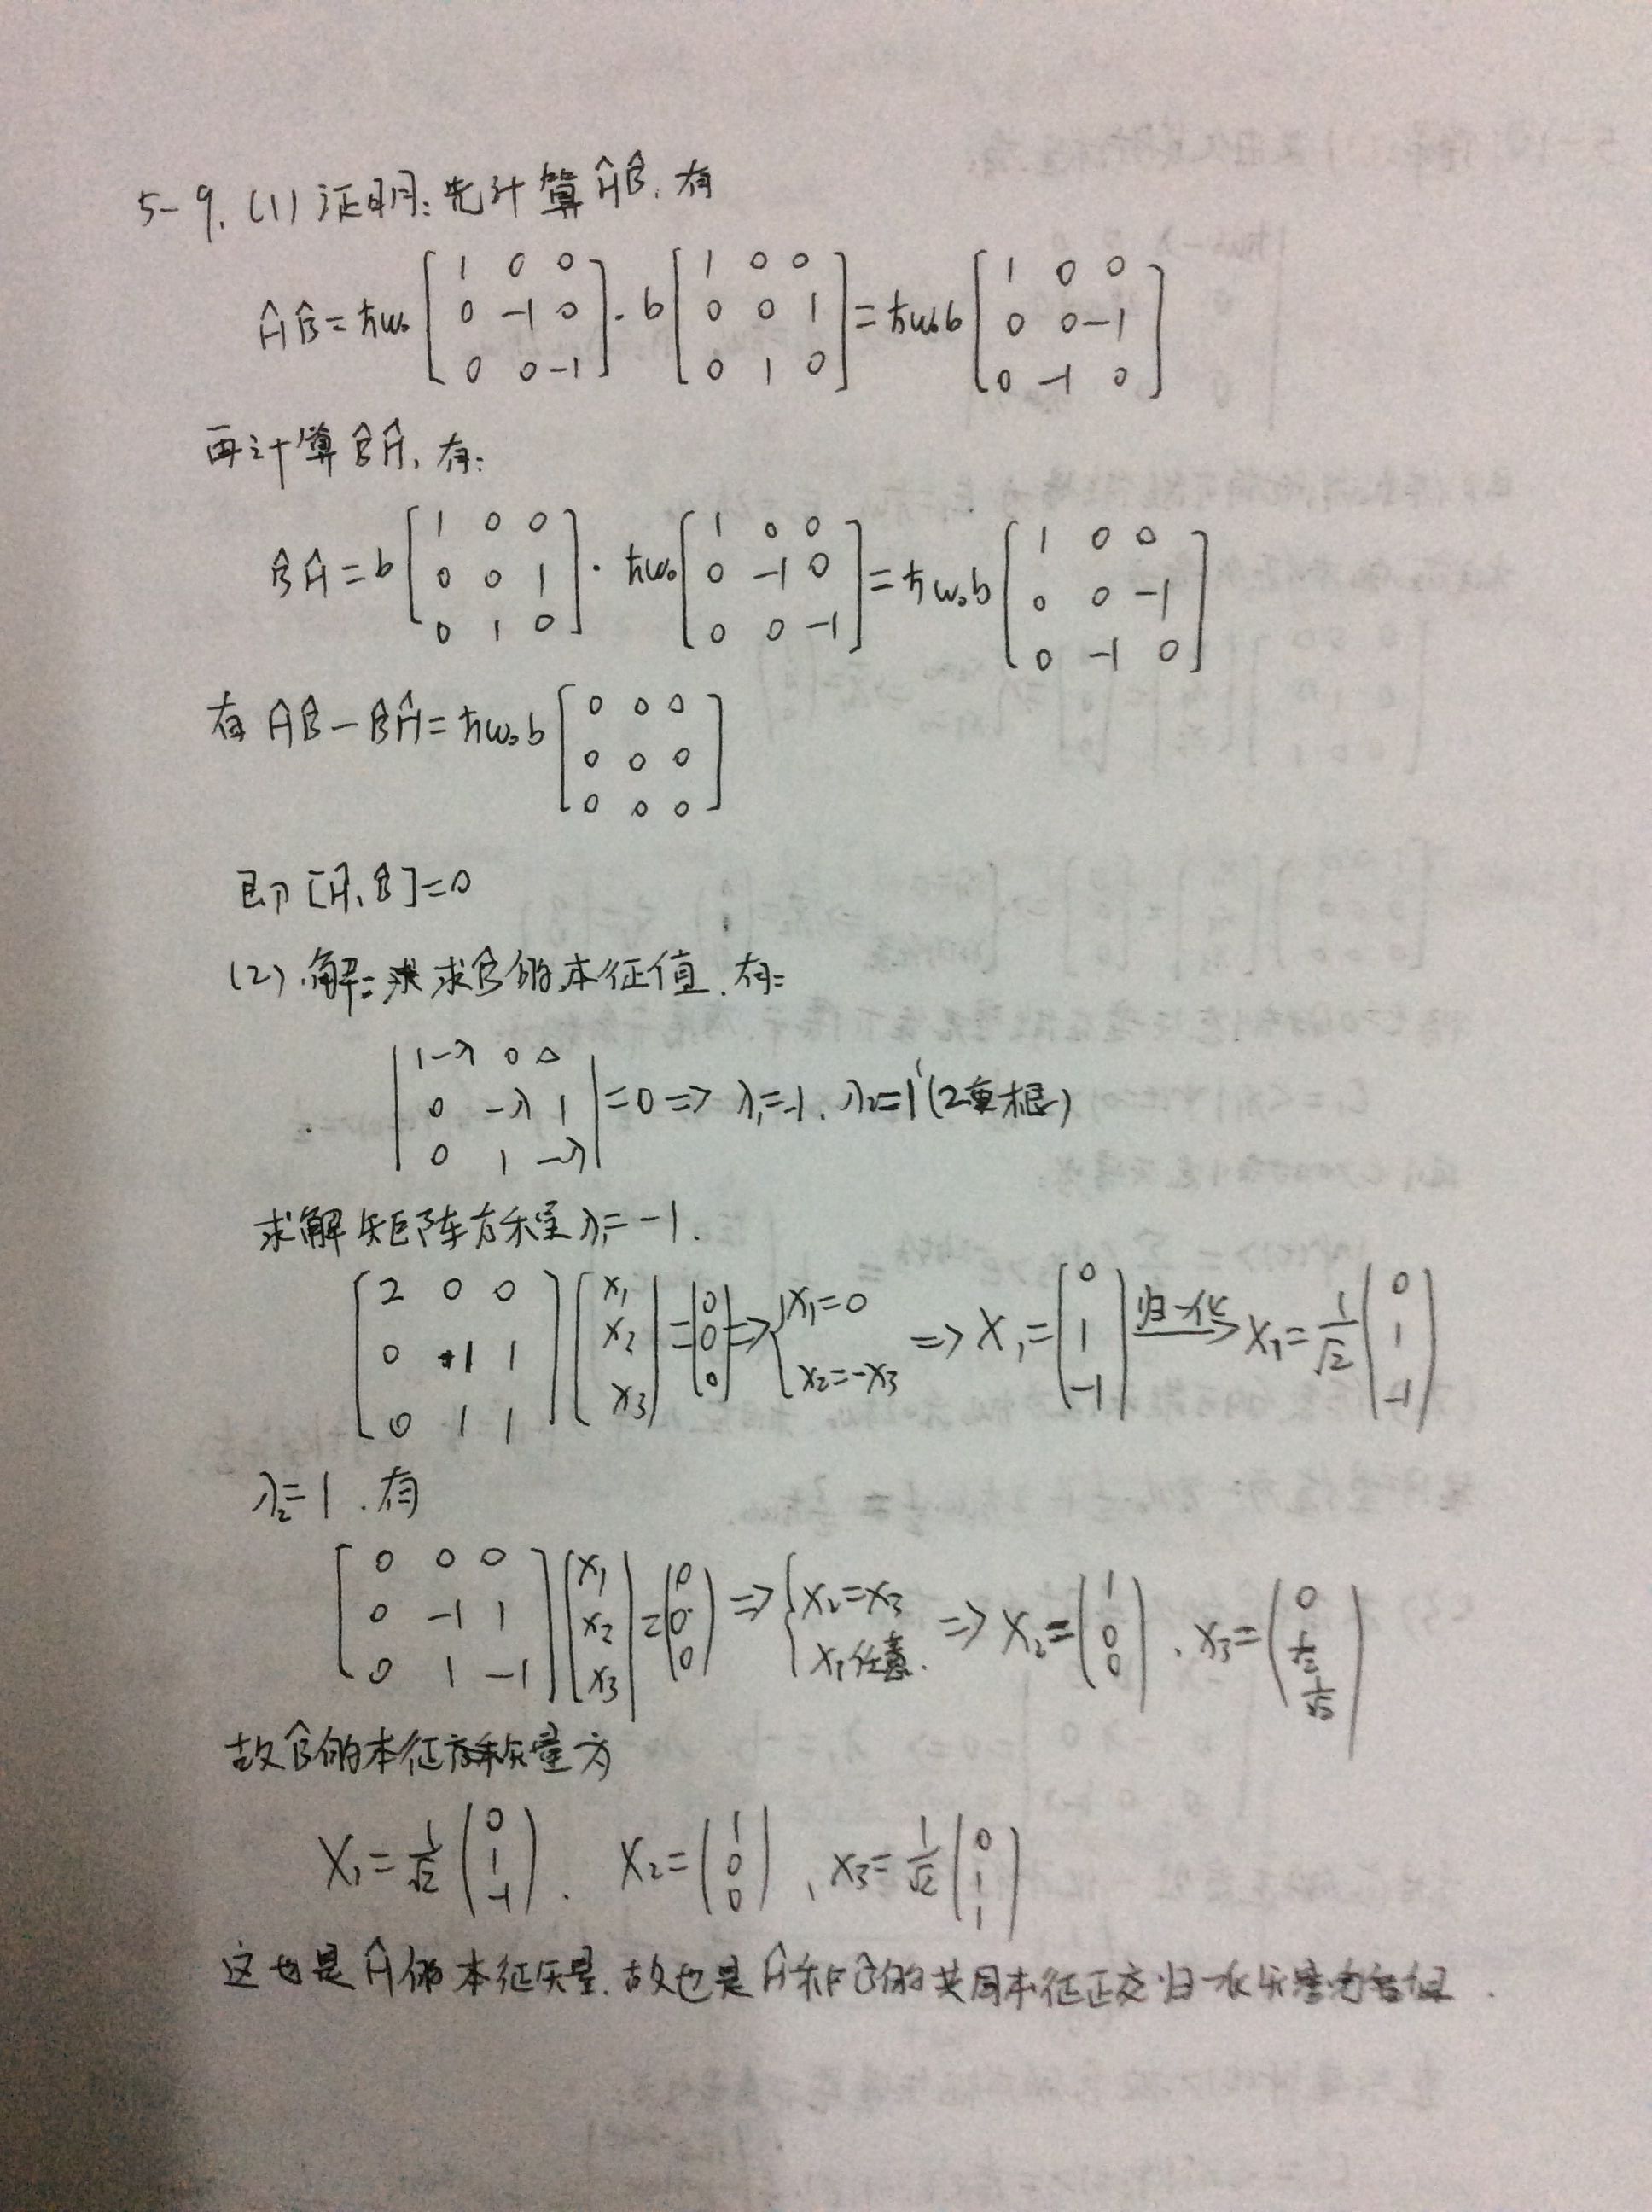 5-9. (1) 证明: 先计算ĤB̂, 有
ĤB̂ = ħω₀ [1 0 0; 0 -1 0; 0 0 -1] · b [1 0 0; 0 0 1; 0 1 0] = ħω₀b [1 0 0; 0 0 -1; 0 -1 0]
再计算B̂Ĥ, 有:
B̂Ĥ = b [1 0 0; 0 0 1; 0 1 0] · ħω₀ [1 0 0; 0 -1 0; 0 0 -1] = ħω₀b [1 0 0; 0 0 -1; 0 -1 0]
有 ĤB̂ - B̂Ĥ = ħω₀b [0 0 0; 0 0 0; 0 0 0]
即 [Ĥ, B̂] = 0
(2). 解: 求B̂的本征值, 有:
|1-λ 0 0; 0 -λ 1; 0 1 -λ| = 0 => λ₁=-1, λ₂=1 (2重根)
求解矩阵方程 λ₁=-1.
[2 0 0; 0 1 1; 0 1 1] [x₁; x₂; x₃] = [0; 0; 0] => { x₁=0; x₂=-x₃ => X₁ = (0; 1; -1) 归一化→ X₁ = 1/√2 (0; 1; -1)
λ₂=1. 有
[0 0 0; 0 -1 1; 0 1 -1] [x₁; x₂; x₃] = (0; 0; 0) => { x₂=x₃; x₁任意. => X₂ = (1; 0; 0), X₃ = (0; 1/√2; 1/√2)
故B̂的本征矢量为
X₁ = 1/√2 (0; 1; -1). X₂ = (1; 0; 0), X₃ = 1/√2 (0; 1; 1)
这也是Ĥ的本征矢量, 故也是Ĥ和B̂的共同本征正交归一矢量